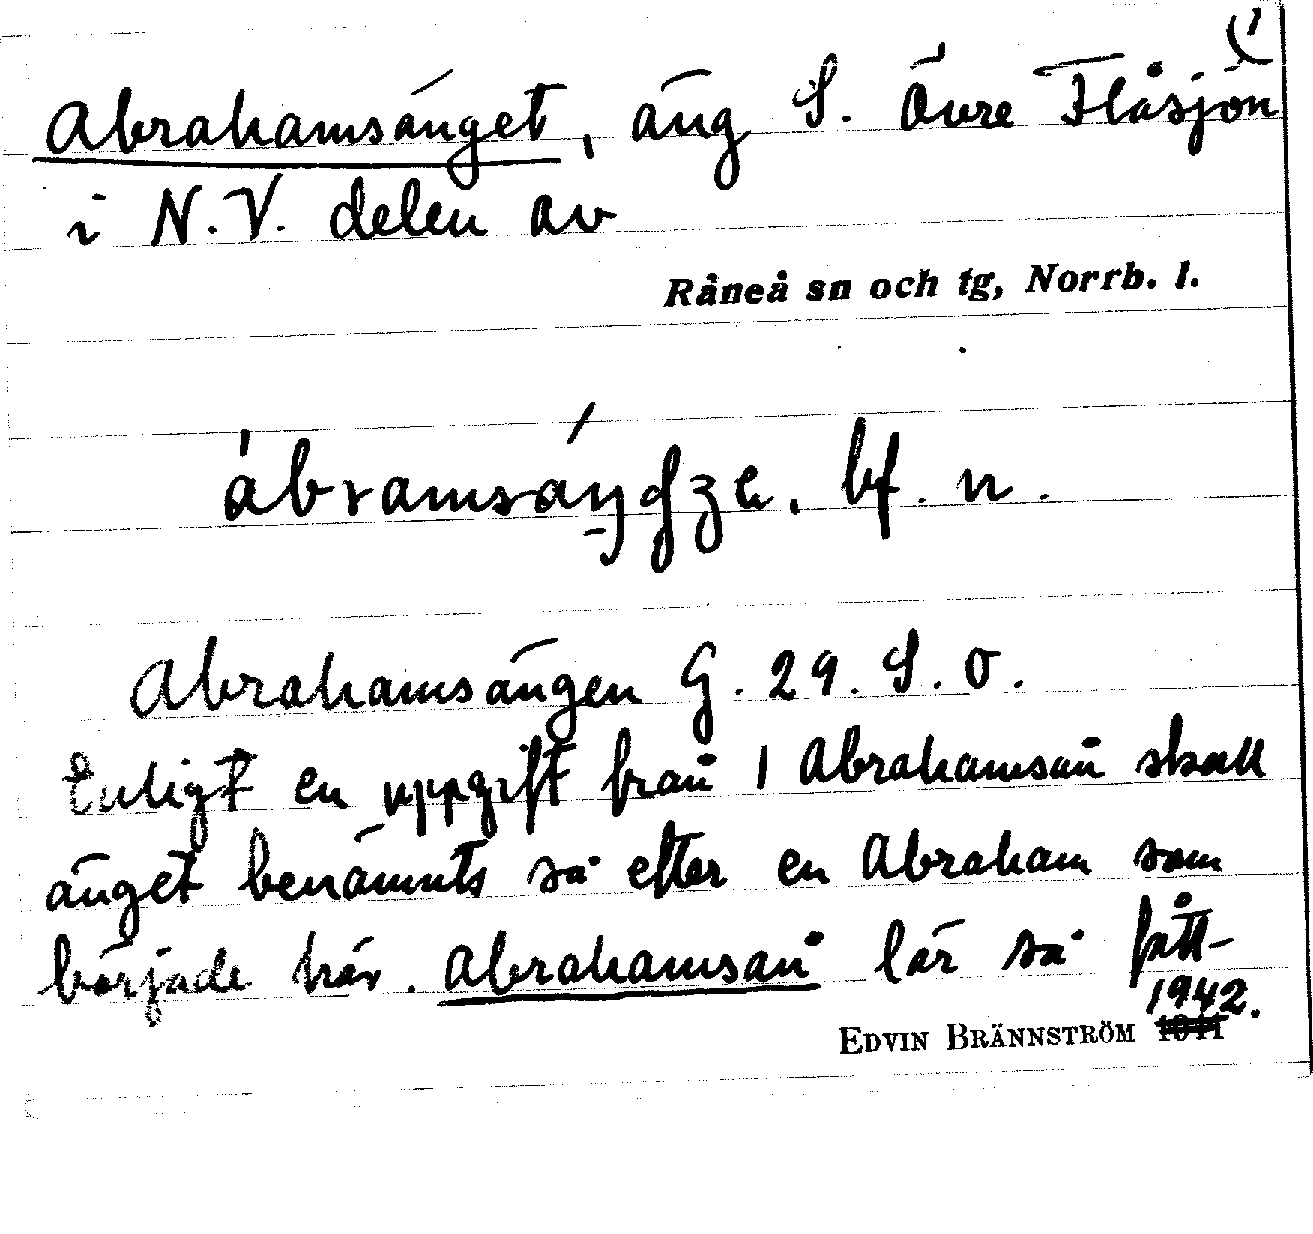 (1
Abrahamsänget, äng S. Övre Flåsjön
i N.V. delen av
Råneå sn och tg, Norrb. l.
bf. n.
Abrahamsängen G. 29. S. O.
Enligt en uppgift från 1 Abrahamsån skall
änget benämnts så efter en Abraham som
började här. Abrahamsån lär så fått-
1942.
EDVIN BRÄNNSTRÖM 1941